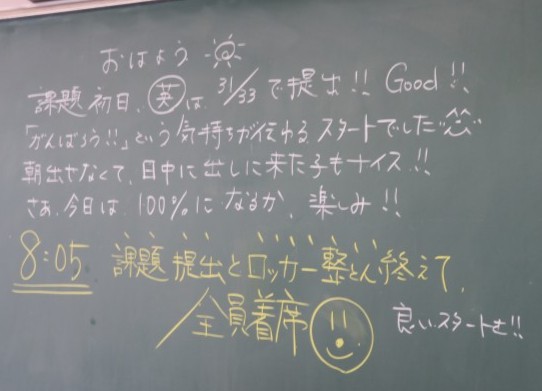 おはよう
課題初日、英は、31/33で提出!! Good!!
「がんばろう!!」という気持ちが伝わるスタートでした
朝出せなくて、日中に出しに来た子もナイス!!
さあ、今日は、100%になるか、楽しみ!!
8:05 課題提出とロッカー整とん終えて、
全員着席
良いスタートを!!